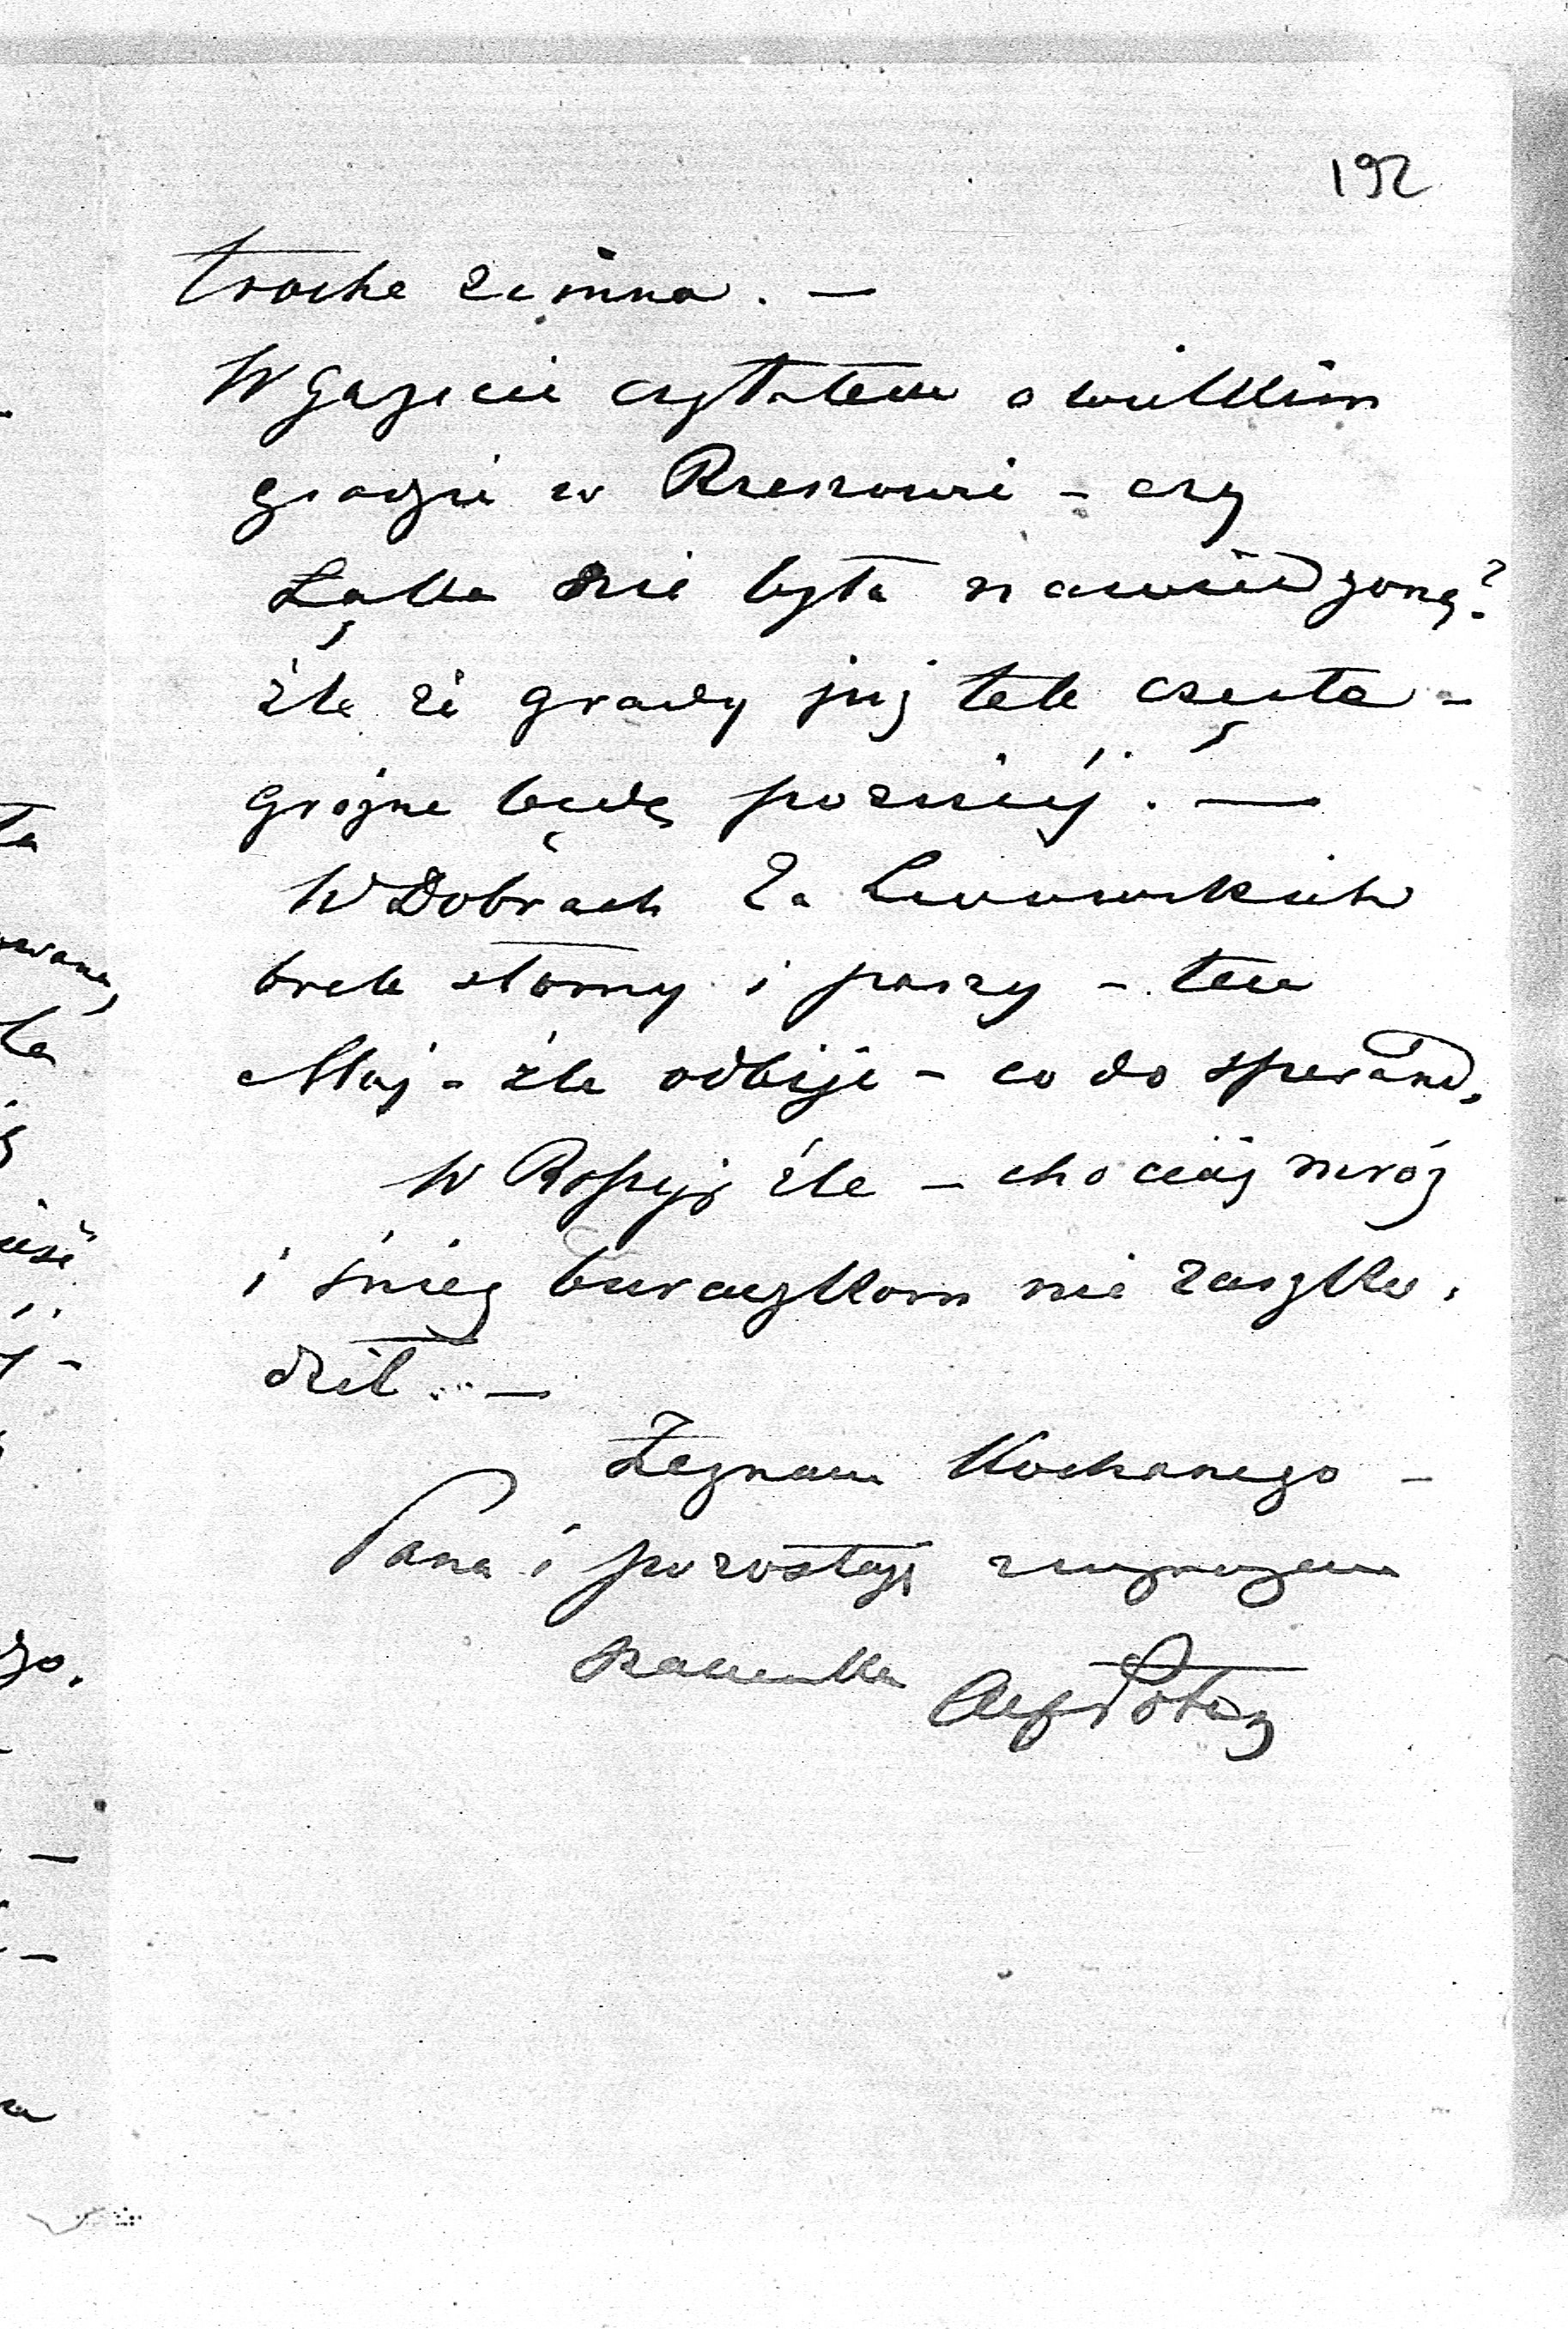 192
troche zimna. —
W Gazecie czytałem o wielkim
gradzie w Rzeszowie – czy
Łąka nie była nawiedzoną?
źle że grady już tak częste –
groźne będą pozniéj. —
W Dobrach Za Lwowskich
brak słomy i paszy – ten
Maj – źle odbije – co do
W Rossyji źle – chociaż mróz
i śnieg buraczkom nie zaszko,
dził. —
Żegnam Kochanego –
Pana i pozostaję z
szacunkiem Alf Potoz